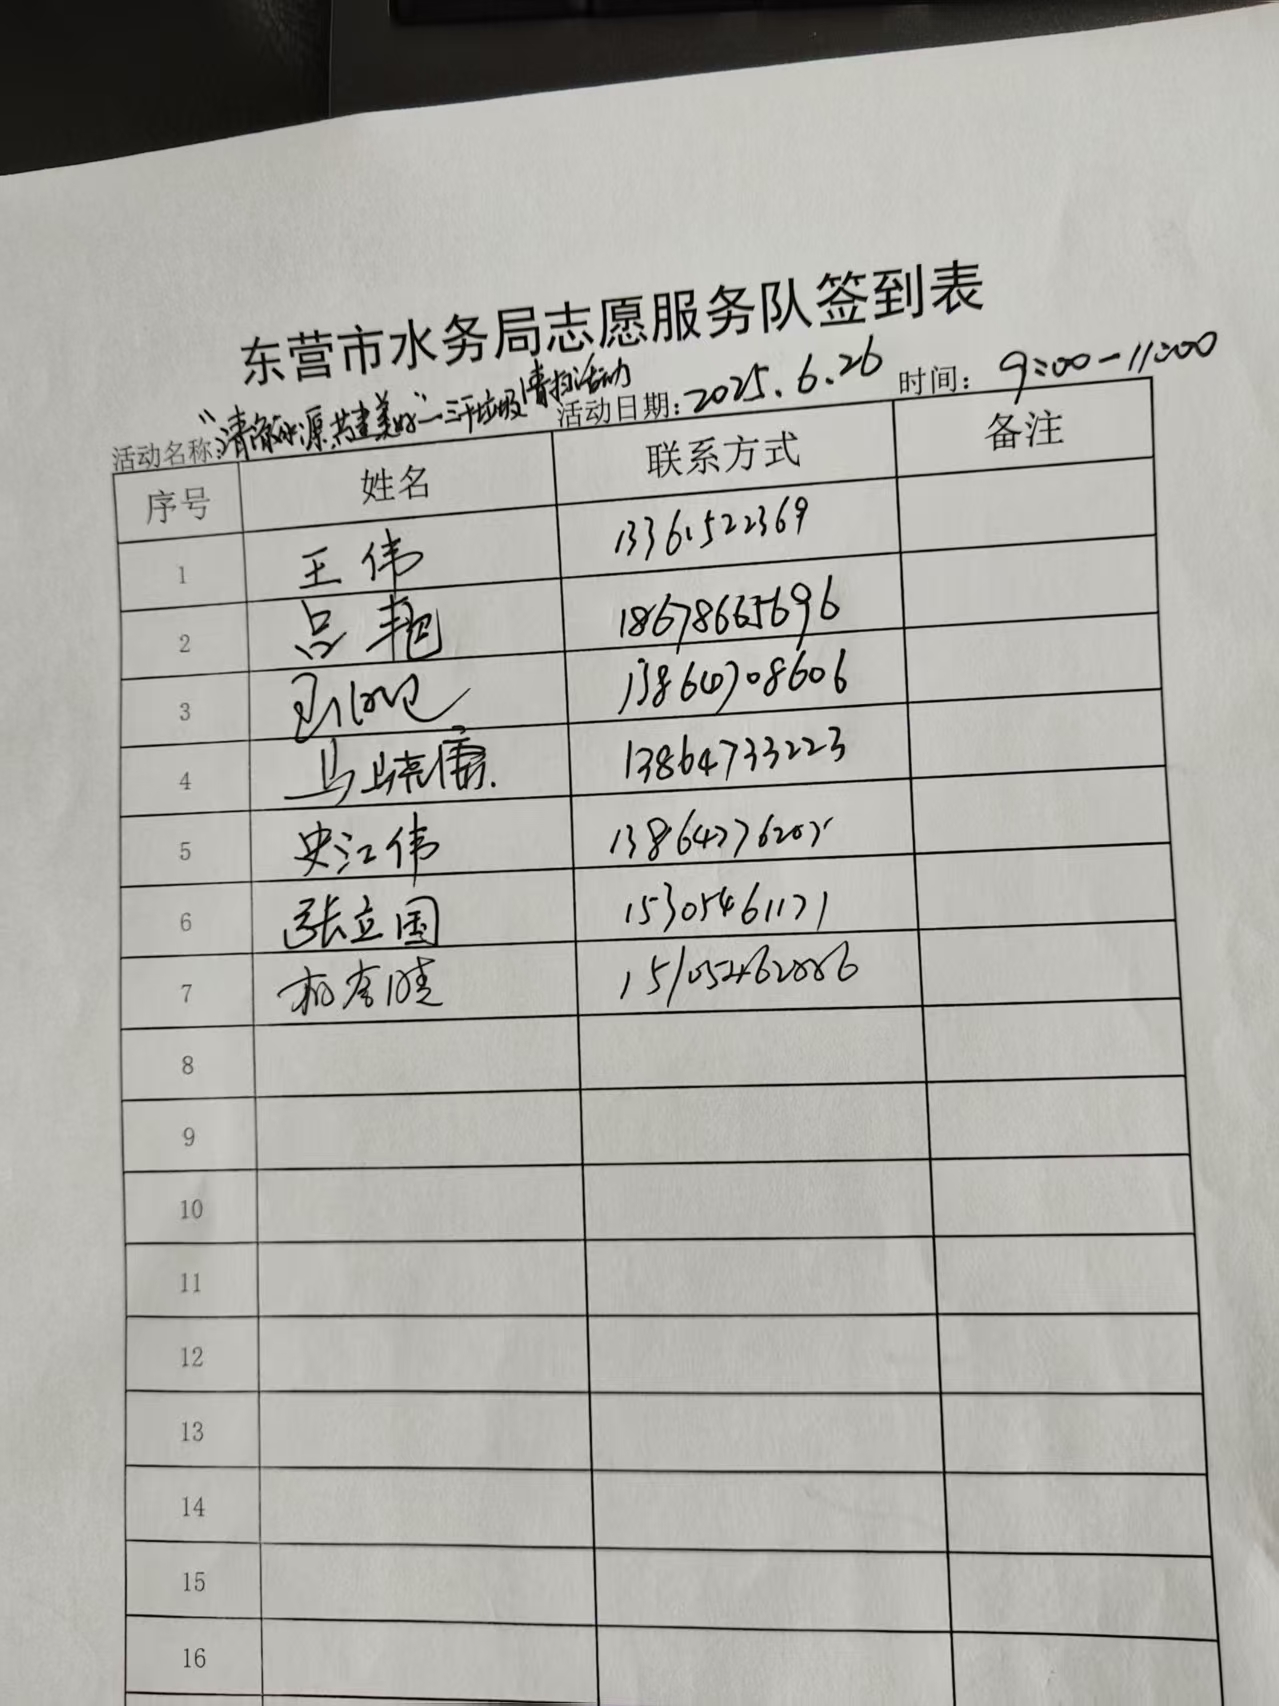 东营市水务局志愿服务队签到表
活动名称:"清源共建美好"垃圾清扫活动 活动日期:2025.6.26 时间:9:00-11:00
序号 姓名 联系方式 备注
1 王伟 13361522369
2 吕艳 18678665696
3 13864708606
4 马晓儒 13864733223
5 史江伟 13864776205
6 张立国 15305461171
7
8
9
10
11
12
13
14
15
16